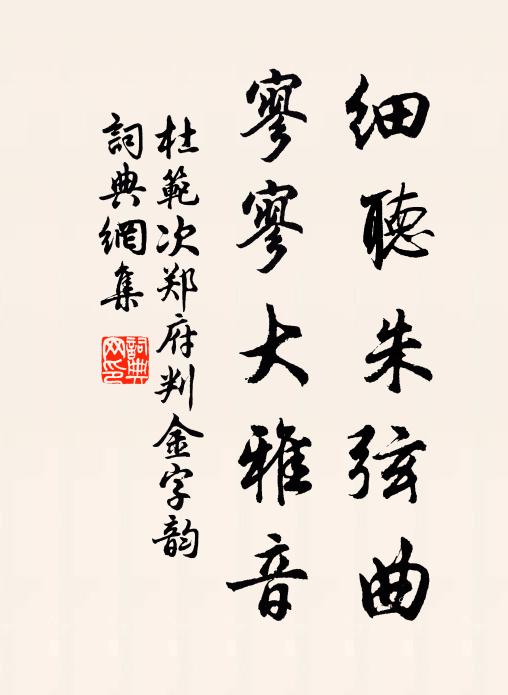 细聴朱弦曲
寥寥大雅音
杜範次郑府判金字韵
詞典網集
詞典网印